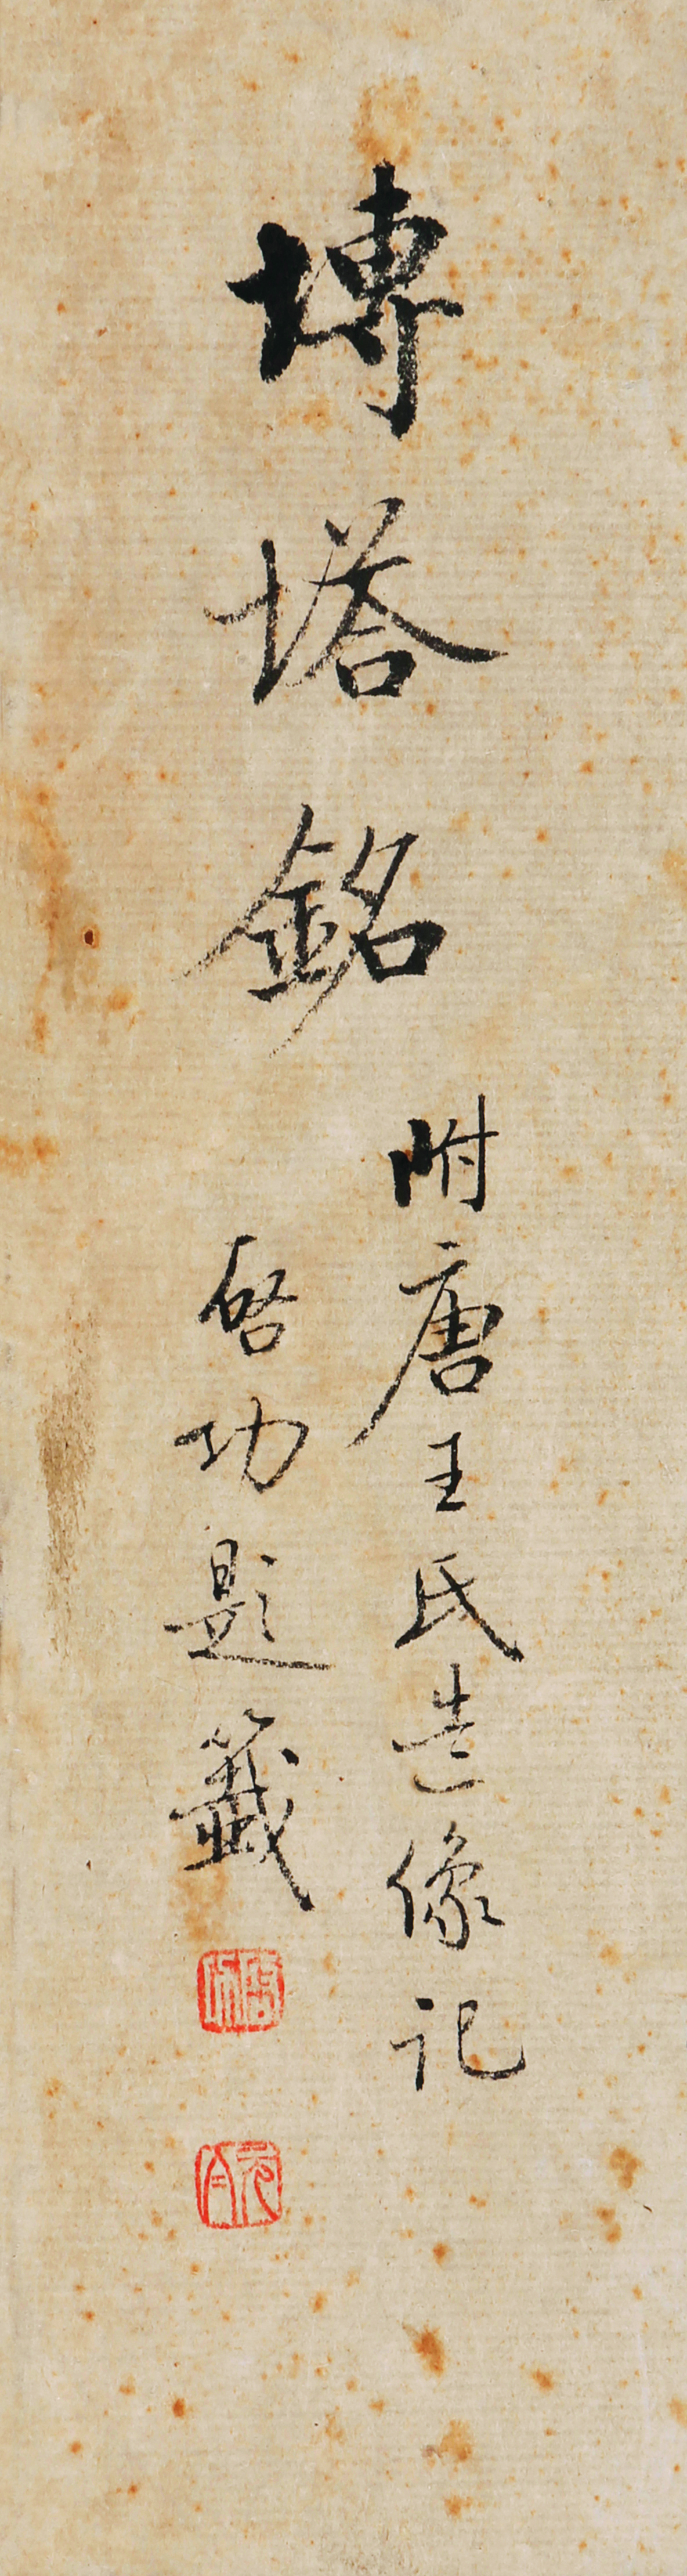 塼塔銘
附唐王氏造像記
啓功題籤
元白